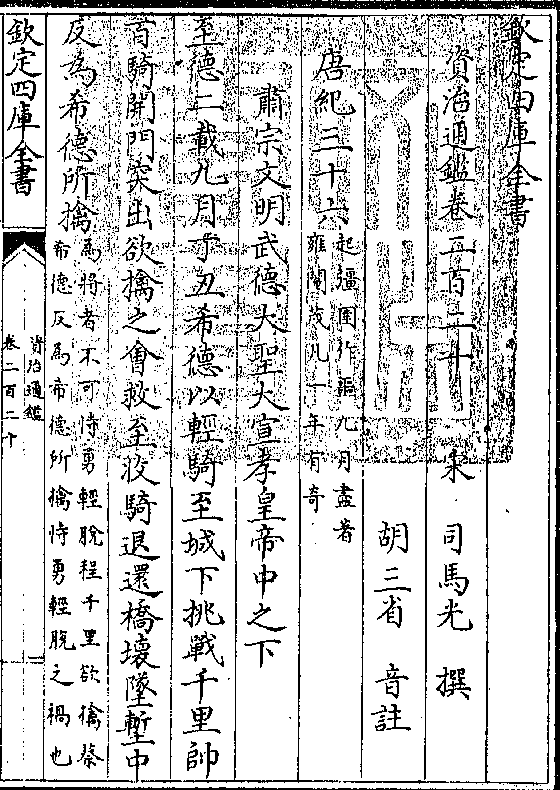 欽定四庫全書
資治通鑑卷二百二十　宋　司馬光　撰
胡三省　音註
唐紀三十六起彊圉作噩九月盡著
雍閹茂凡一年有奇
肅宗文明武德大聖大宣孝皇帝中之下
至德二載九月丁丑希德以輕騎至城下挑戰千里帥
百騎開門突出欲擒之會救至收騎退還橋壞墜塹中
反為希德所擒為將者不可恃勇輕脫程千里欲擒蔡
希德反為希德所擒恃勇輕脫之禍也
欽定四庫全書
資治通鑑
卷二百二十